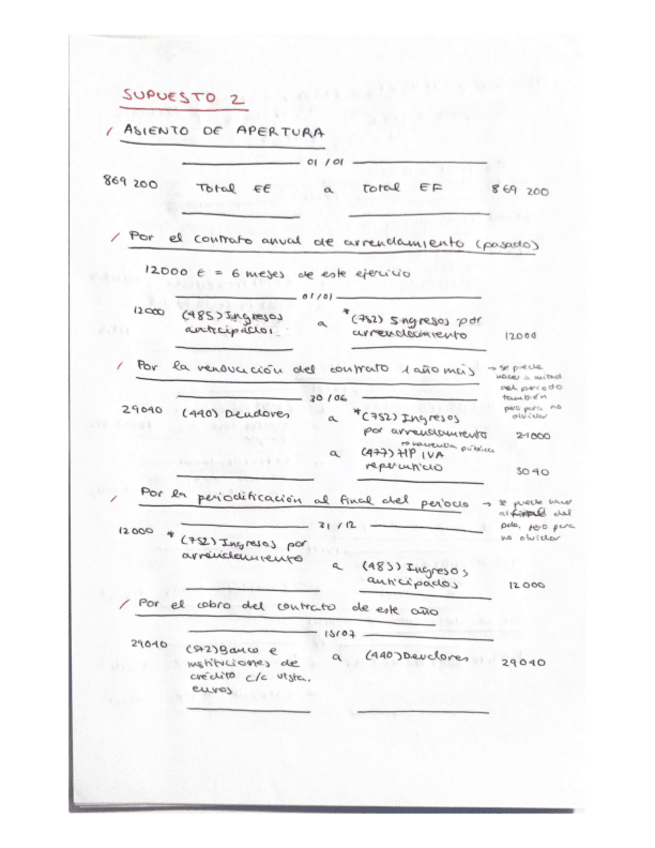 SUPUESTO 2
/ ASIENTO DE APERTURA
01/01
869 200 Total EE a Total EF 869 200
/ Por el contrato anual de arrendamiento (pasado)
12000 € = 6 meses de este ejercicio
01/01
12000 (485) Ingresos anticipados a *(752) Ingresos por arrendamiento 12000
/ Por la renovación del contrato 1 año más → se puede hacer a mitad del periodo también pero para no olvidar
30/06
29040 (440) Deudores a *(752) Ingresos por arrendamiento 24000
a (477) HP IVA repercutido 5040
/ Por la periodificación al final del periodo → se puede hacer al final del pdo. pero para no olvidar
31/12
12000 *(752) Ingresos por arrendamiento
a (485) Ingresos anticipados 12000
/ Por el cobro del contrato de este año
15/07
29040 (572) Banco e instituciones de crédito c/c vista, euros a (440) Deudores 29040